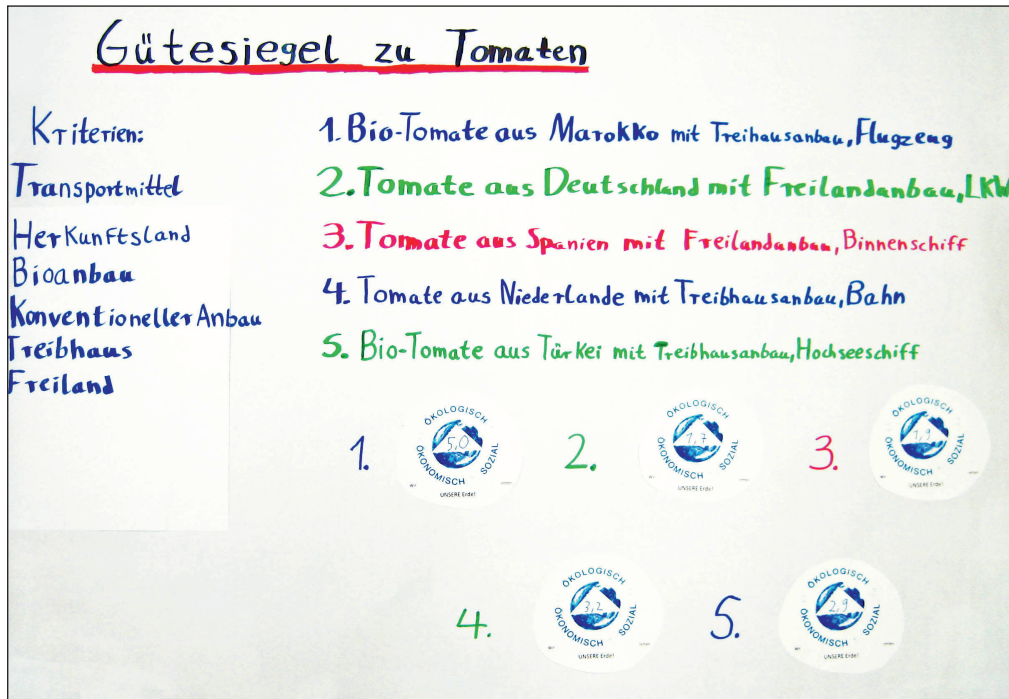 Gütesiegel zu Tomaten
Kriterien:
Transportmittel
Herkunftsland
Bioanbau
Konventioneller Anbau
Treibhaus
Freiland
1. Bio-Tomate aus Marokko mit Treihausanbau, Flugzeug
2. Tomate aus Deutschland mit Freilandanbau, LKW
3. Tomate aus Spanien mit Freilandanbau, Binnenschiff
4. Tomate aus Niederlande mit Treibhausanbau, Bahn
5. Bio-Tomate aus Türkei mit Treibhausanbau, Hochseeschiff
1.
ÖKOLOGISCH
ÖKONOMISCH
SOZIAL
5,0
UNSERE Erde!
2.
ÖKOLOGISCH
ÖKONOMISCH
SOZIAL
1,7
UNSERE Erde!
3.
ÖKOLOGISCH
ÖKONOMISCH
SOZIAL
1,9
UNSERE Erde!
4.
ÖKOLOGISCH
ÖKONOMISCH
SOZIAL
3,2
UNSERE Erde!
5.
ÖKOLOGISCH
ÖKONOMISCH
SOZIAL
2,9
UNSERE Erde!